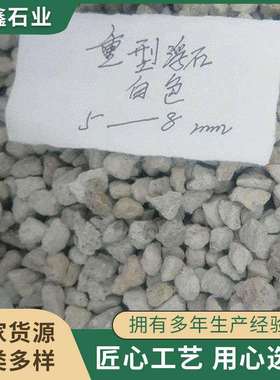 鑫石业
重型浮石
白色
5—8mm
家货源
类多样
拥有多年生产经验
匠心工艺 用心选